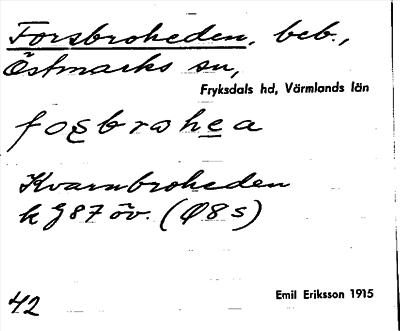 Forsbroheden, beb.,
Östmarks sn,
Fryksdals hd, Värmlands län
Kvarnbroheden
k 87 öv. (Ø8s)
42
Emil Eriksson 1915